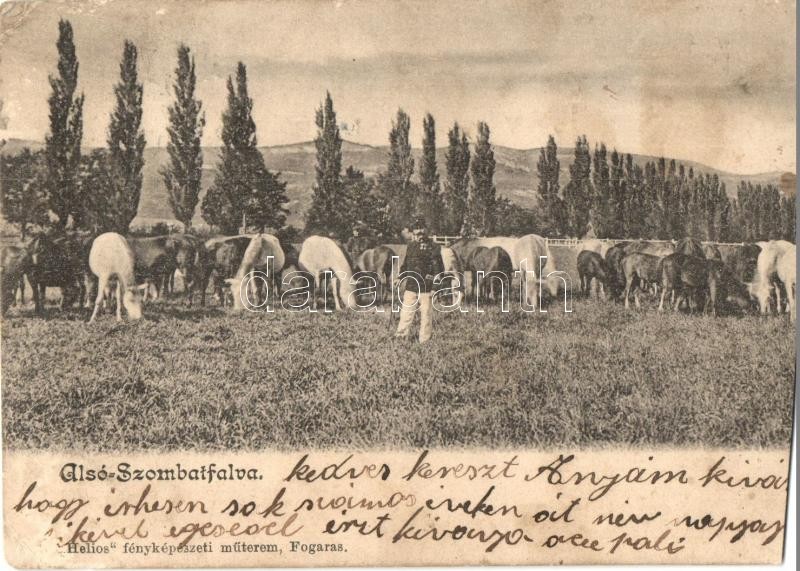 darabanth
Alsó-Szombatfalva. kedves kereszt Anyám kivá
hogy érhesen sok számos iveken át nev napját
kivel egeseget érzt kivanja
"Helios" fényképészeti műterem, Fogaras.